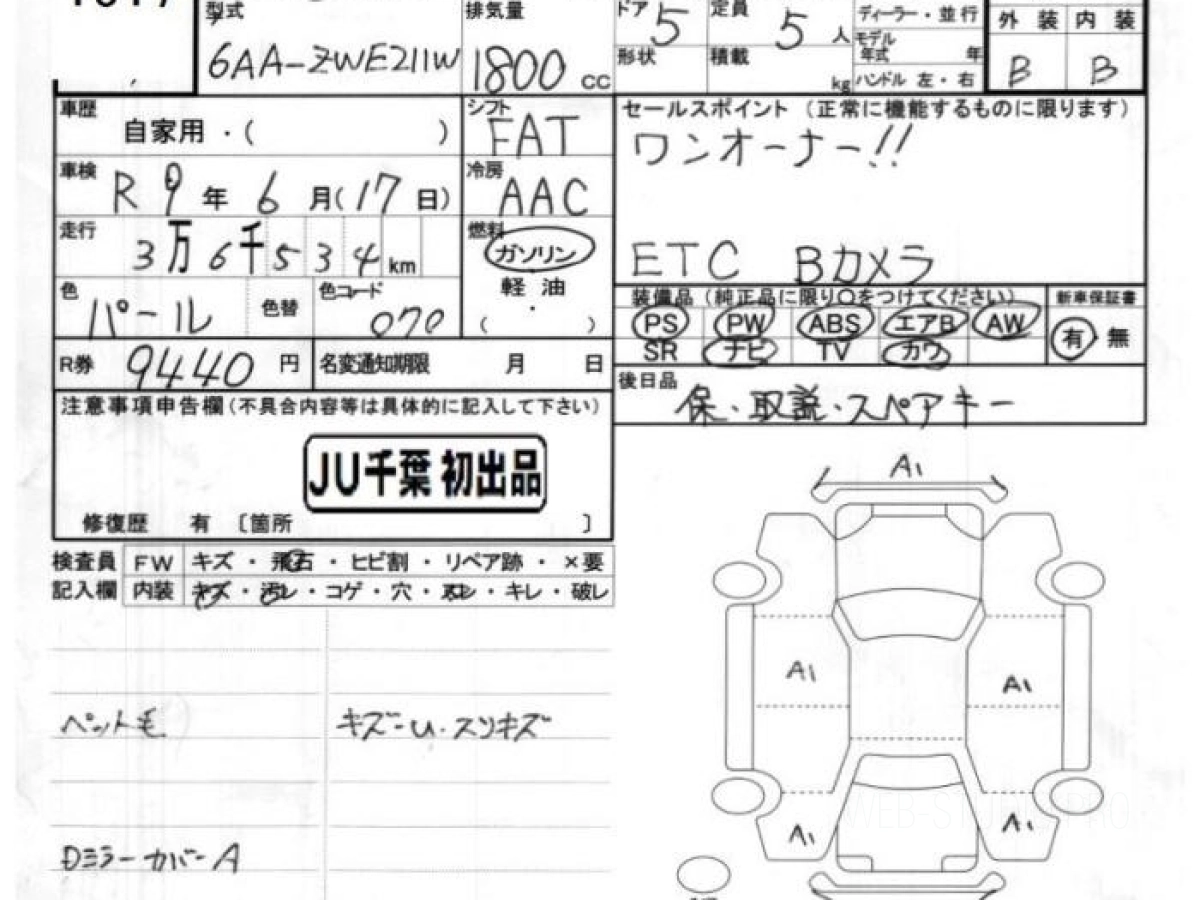 型式
6AA-ZWE211W
排気量
1800 cc
ドア 5
形状
定員 5 人
積載 kg
ディーラー・並行
モデル年式 年
ハンドル 左・右
外装 内装
B B
車歴 自家用・( )
シフト FAT
車検 R 9 年 6 月(17 日)
冷房 AAC
走行 3万6千534km
燃料 ガソリン
軽油
( ・ )
色 パール 色替 色コード 070
R券 9440 円 名変通知期限 月 日
セールスポイント(正常に機能するものに限ります)
ワンオーナー!!
ETC Bカメラ
装備品(純正品に限り○をつけてください) 新車保証書
PS PW ABS エアB AW 有・無
SR ナビ TV カワ
後日品
保・取説・スペアキー
注意事項申告欄(不具合内容等は具体的に記入して下さい)
JU千葉 初出品
修復歴 有 〔箇所 〕
検査員 FW キズ・飛石・ヒビ割・リペア跡・×要
記入欄 内装 キズ・汚レ・コゲ・穴・スレ・キレ・破レ
ペット毛
キズ-U・スリキズ
Dミラーカバー A
A1
A1 A1
A1 A1